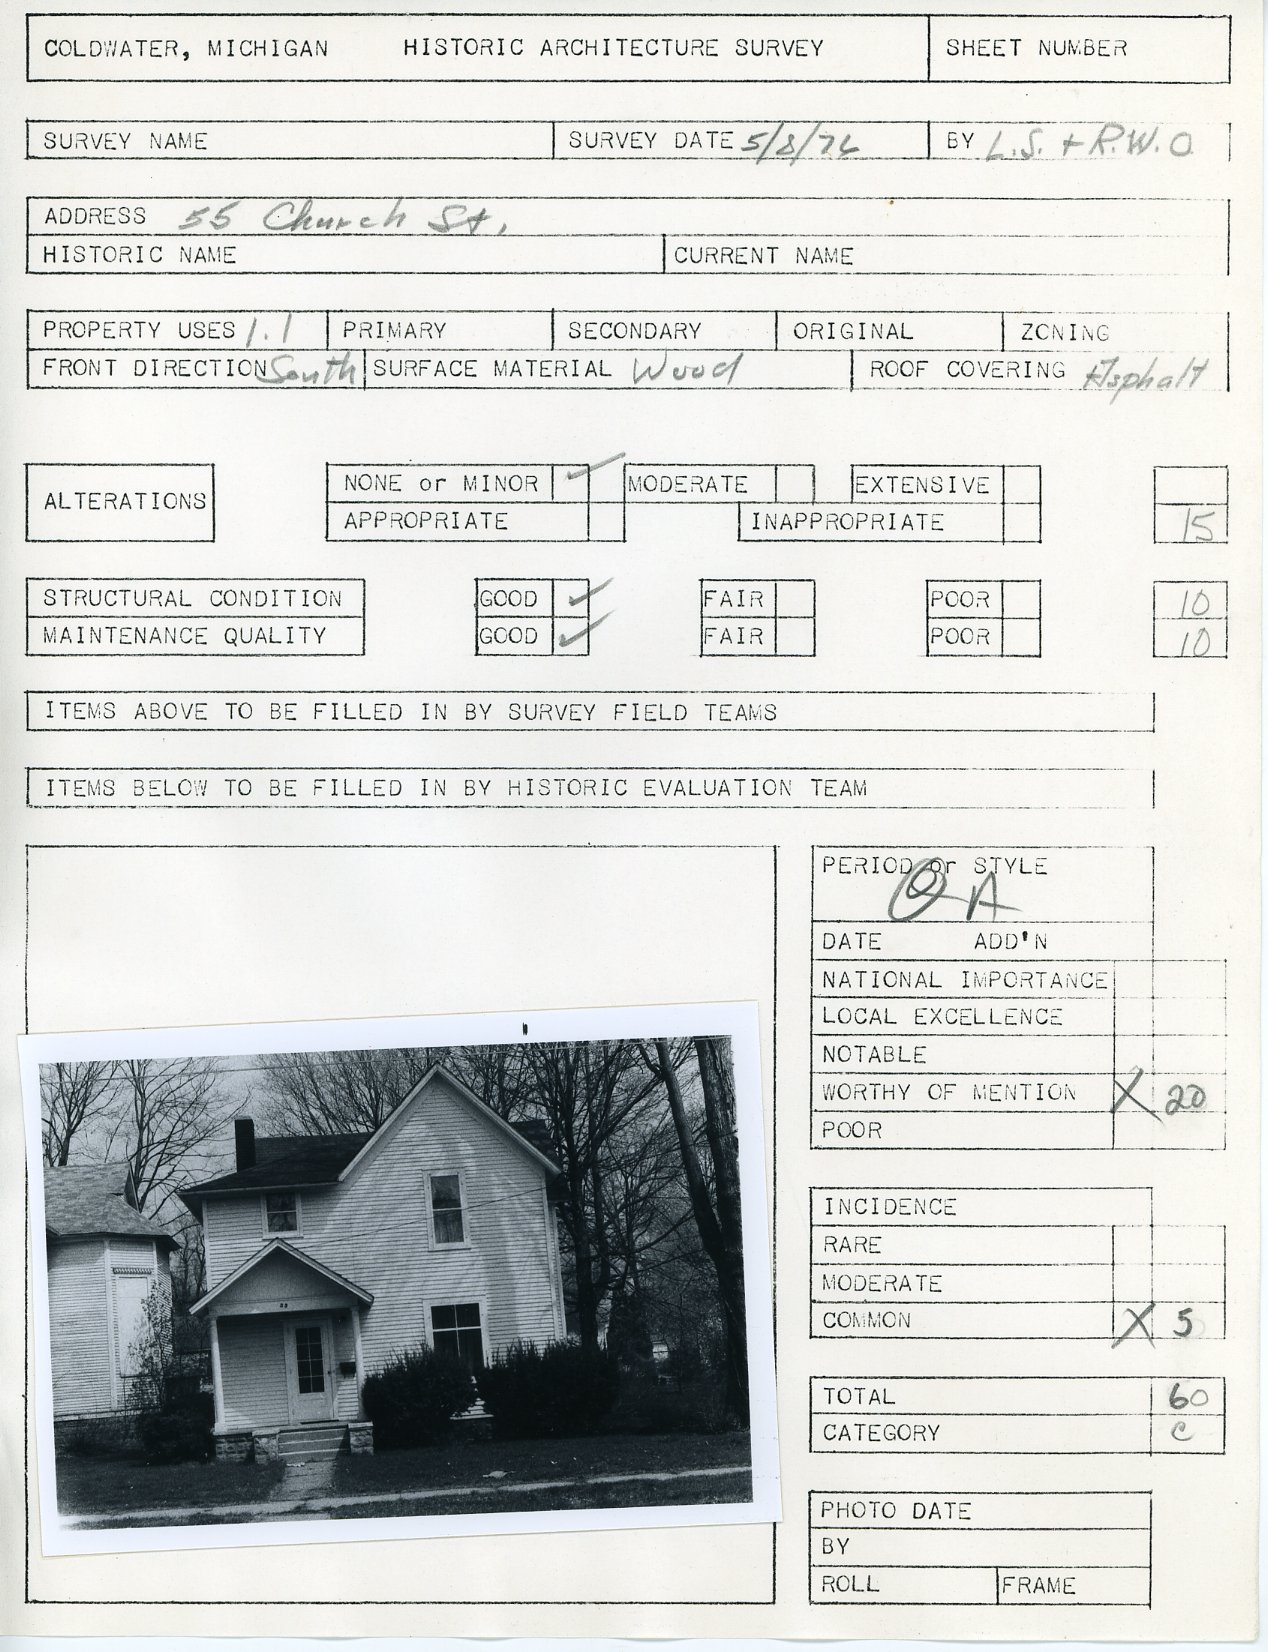 COLDWATER, MICHIGAN HISTORIC ARCHITECTURE SURVEY SHEET NUMBER
SURVEY NAME SURVEY DATE 5/8/76 BY L.S. + R.W.O
ADDRESS 55 Church St.
HISTORIC NAME CURRENT NAME
PROPERTY USES 1.1 PRIMARY SECONDARY ORIGINAL ZONING
FRONT DIRECTION South SURFACE MATERIAL Wood ROOF COVERING Asphalt
ALTERATIONS
NONE or MINOR ✓ MODERATE EXTENSIVE
APPROPRIATE INAPPROPRIATE 15
STRUCTURAL CONDITION GOOD ✓ FAIR POOR 10
MAINTENANCE QUALITY GOOD ✓ FAIR POOR 10
ITEMS ABOVE TO BE FILLED IN BY SURVEY FIELD TEAMS
ITEMS BELOW TO BE FILLED IN BY HISTORIC EVALUATION TEAM
PERIOD or STYLE
QA
DATE ADD'N
NATIONAL IMPORTANCE
LOCAL EXCELLENCE
NOTABLE
WORTHY OF MENTION X 20
POOR
INCIDENCE
RARE
MODERATE
COMMON X 5
TOTAL 60
CATEGORY C
PHOTO DATE
BY
ROLL FRAME